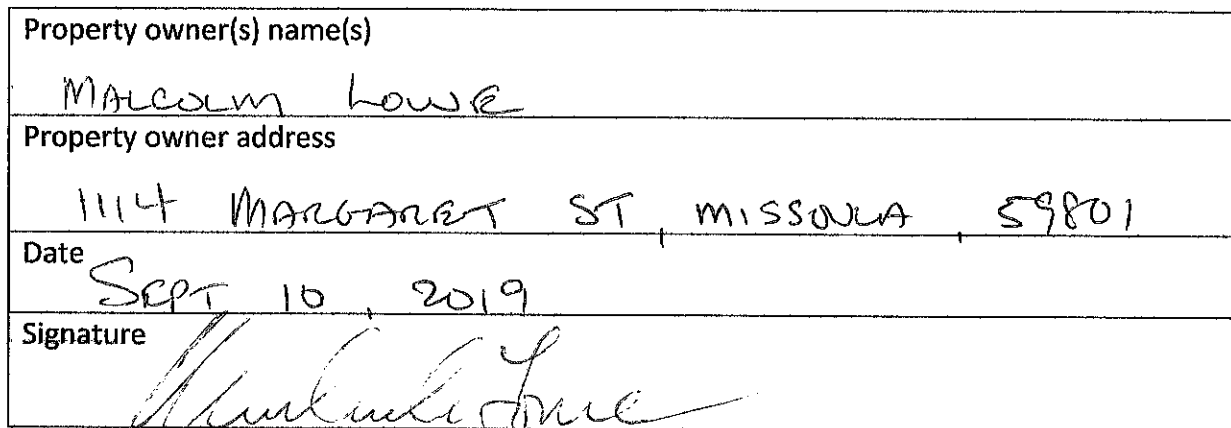 Property owner(s) name(s)
MALCOLM LOWE
Property owner address
1114 MARGARET ST, MISSOULA, 59801
Date
SEPT 10, 2019
Signature